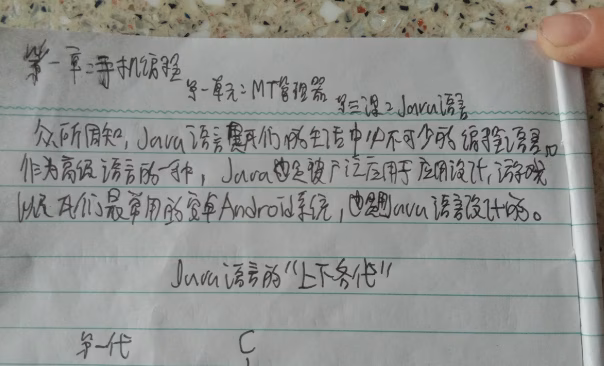 第一章：手机编程
第一单元：MT管理器 第三课：Java语言
众所周知，Java语言是我们的生活中必不可少的编程语言。
作为高级语言的一种，Java也是被广泛应用于应用设计，游戏
以及我们最常用的安卓Android系统，也是Java语言设计的。
Java语言的“上下各代”
第一代 C